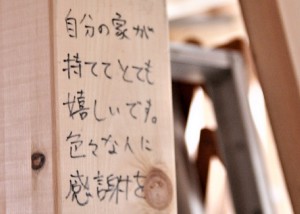 自分の家が
持ててとても
嬉しいです。
色々な人に
感謝を